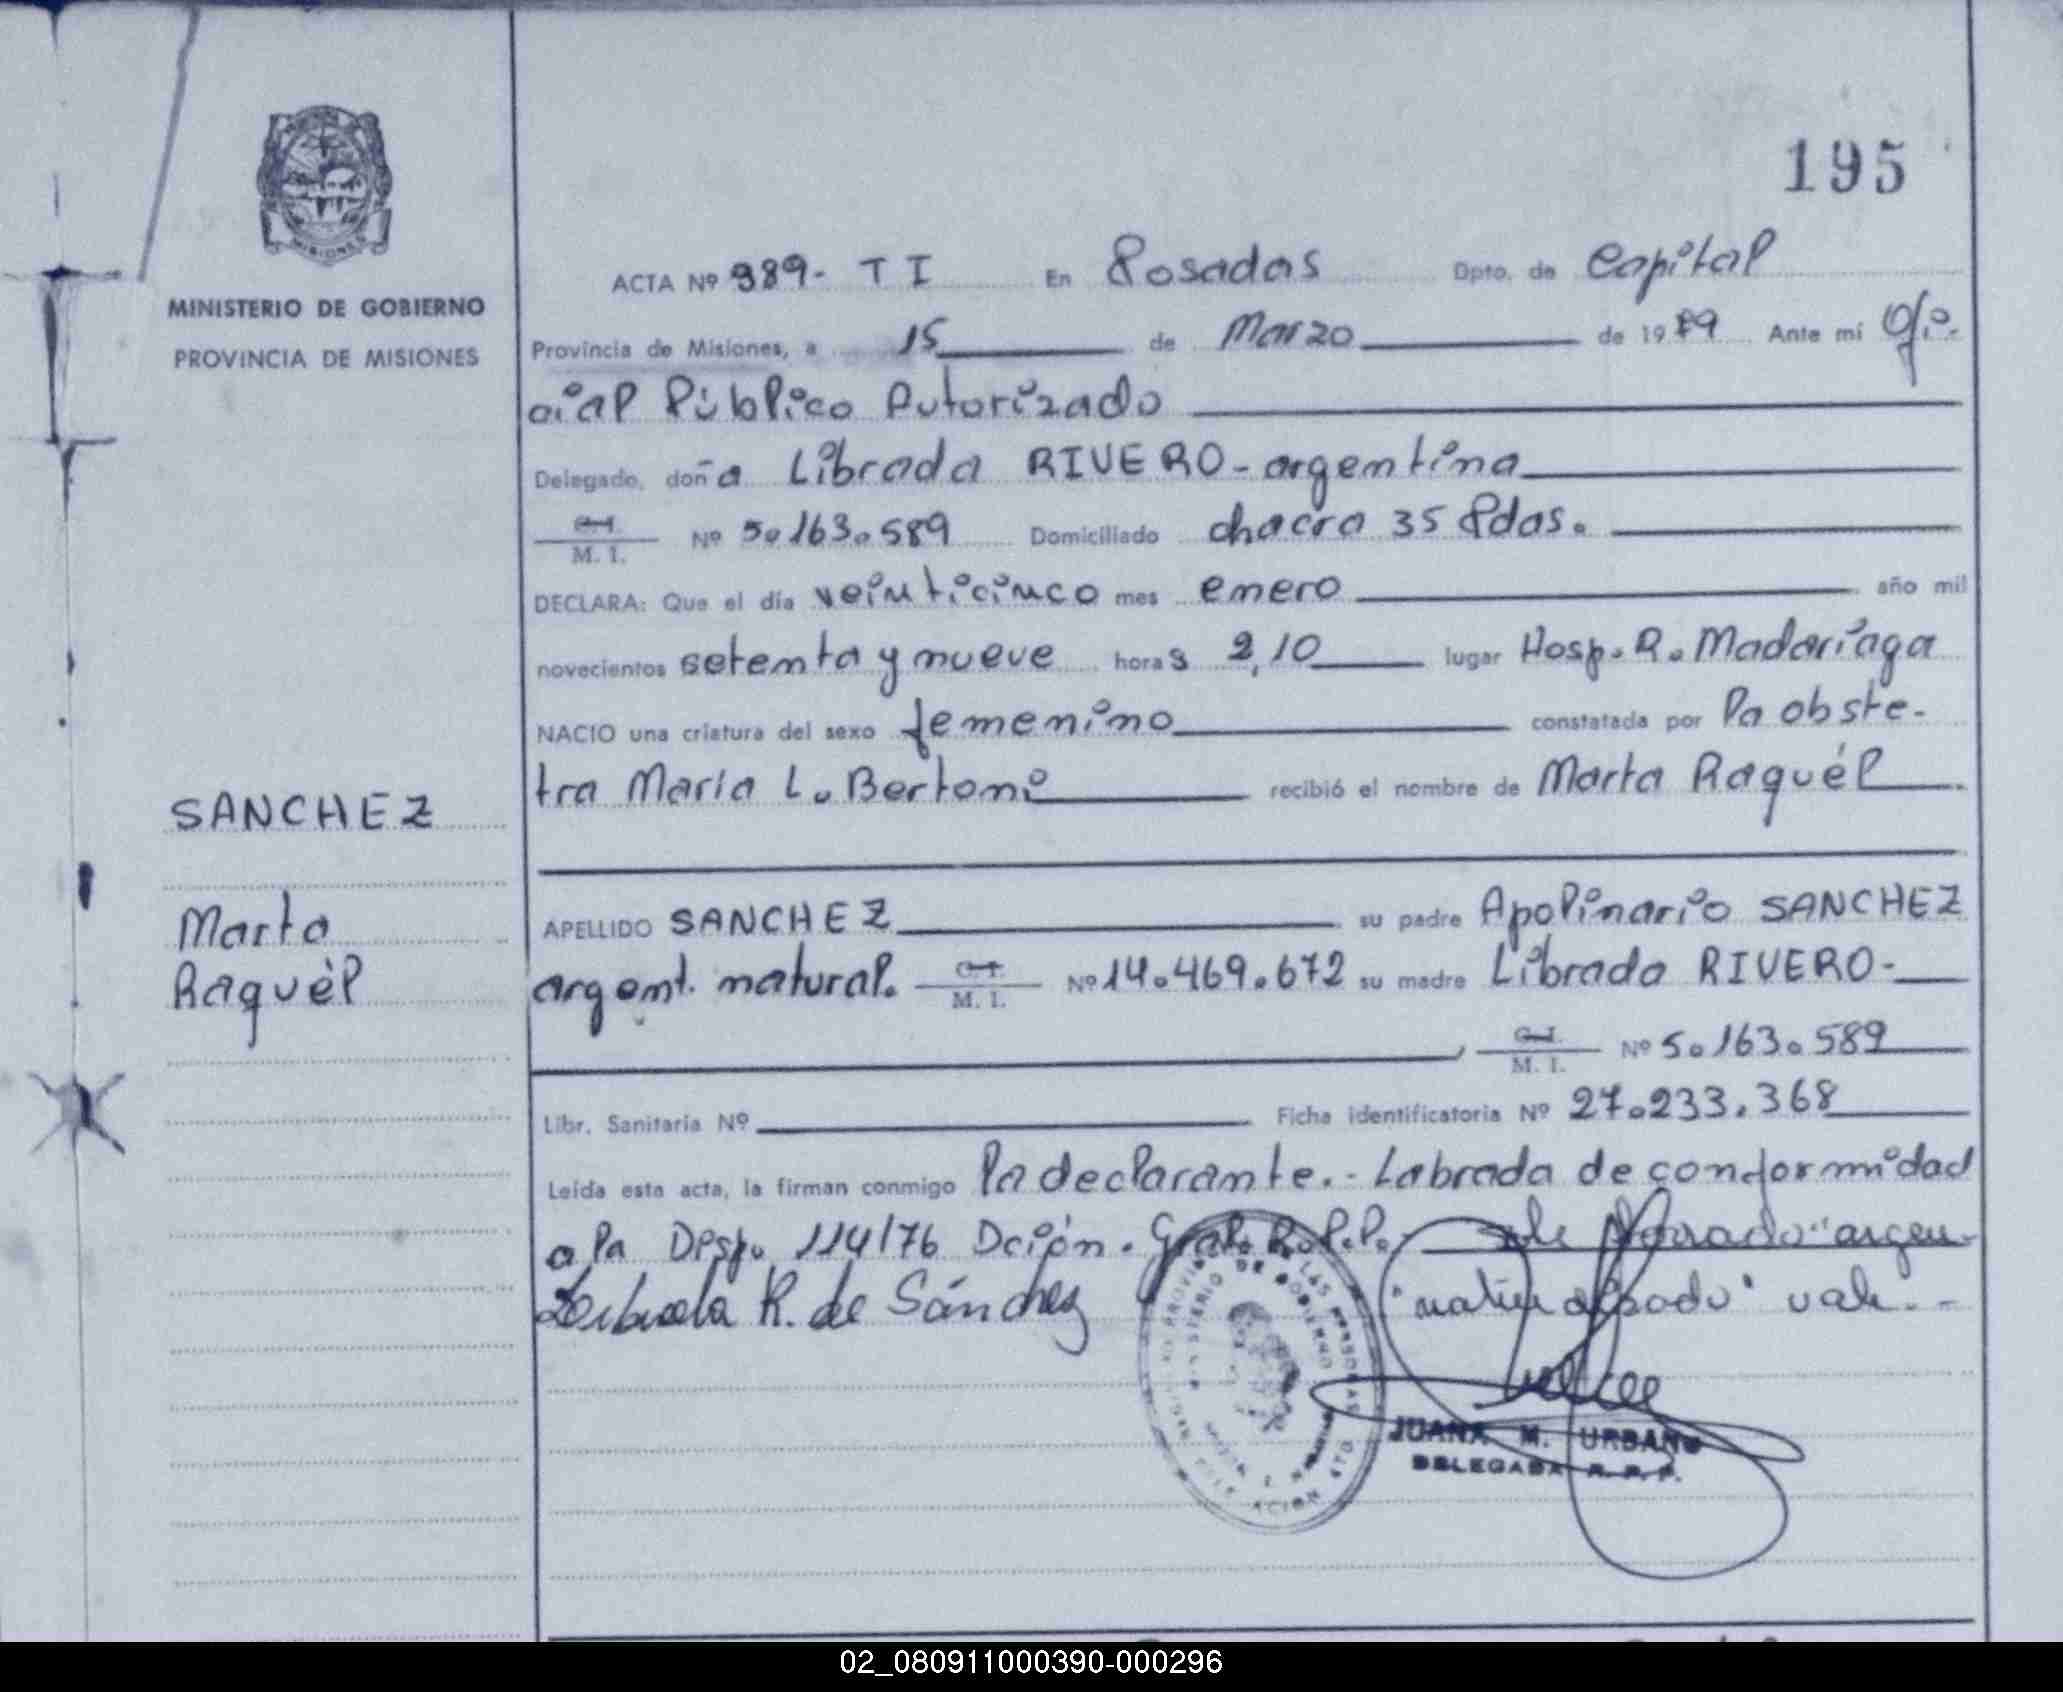 195
MISIONES
MINISTERIO DE GOBIERNO
PROVINCIA DE MISIONES
SANCHEZ
Marta
Raquèl
ACTA Nº 989- T I En Posadas Dpto. de Capital
Provincia de Misiones, a 15 de Marzo de 1979 Ante mí Ofi-
cial Público Autorizado
Delegado, doña Librada RIVERO- argentina
C.I. M. I. Nº 5.163.589 Domiciliado chacra 35 Pdas.
DECLARA: Que el día veinticinco mes enero año mil
novecientos setenta y nueve horas 2,10 lugar Hosp. R. Madariaga
NACIO una criatura del sexo femenino constatada por la obste-
tra María L. Bertoni recibió el nombre de Marta Raquél
APELLIDO SANCHEZ su padre Apolinario SANCHEZ
argent. natural. C.I. M. I. Nº 14.469.672 su madre Librada RIVERO-
C.I. M. I. Nº 5.163.589
Libr. Sanitaria Nº Ficha identificatoria Nº 27.233.368
Leída esta acta, la firman conmigo la declarante.- Labrada de conformidad
a la Disp. 114/76 Dción. Gral. R.P.P. argen-
Librada R. de Sánchez vale.-
JUANA M. URBANO
DELEGADA R. P. P.
02_080911000390-000296